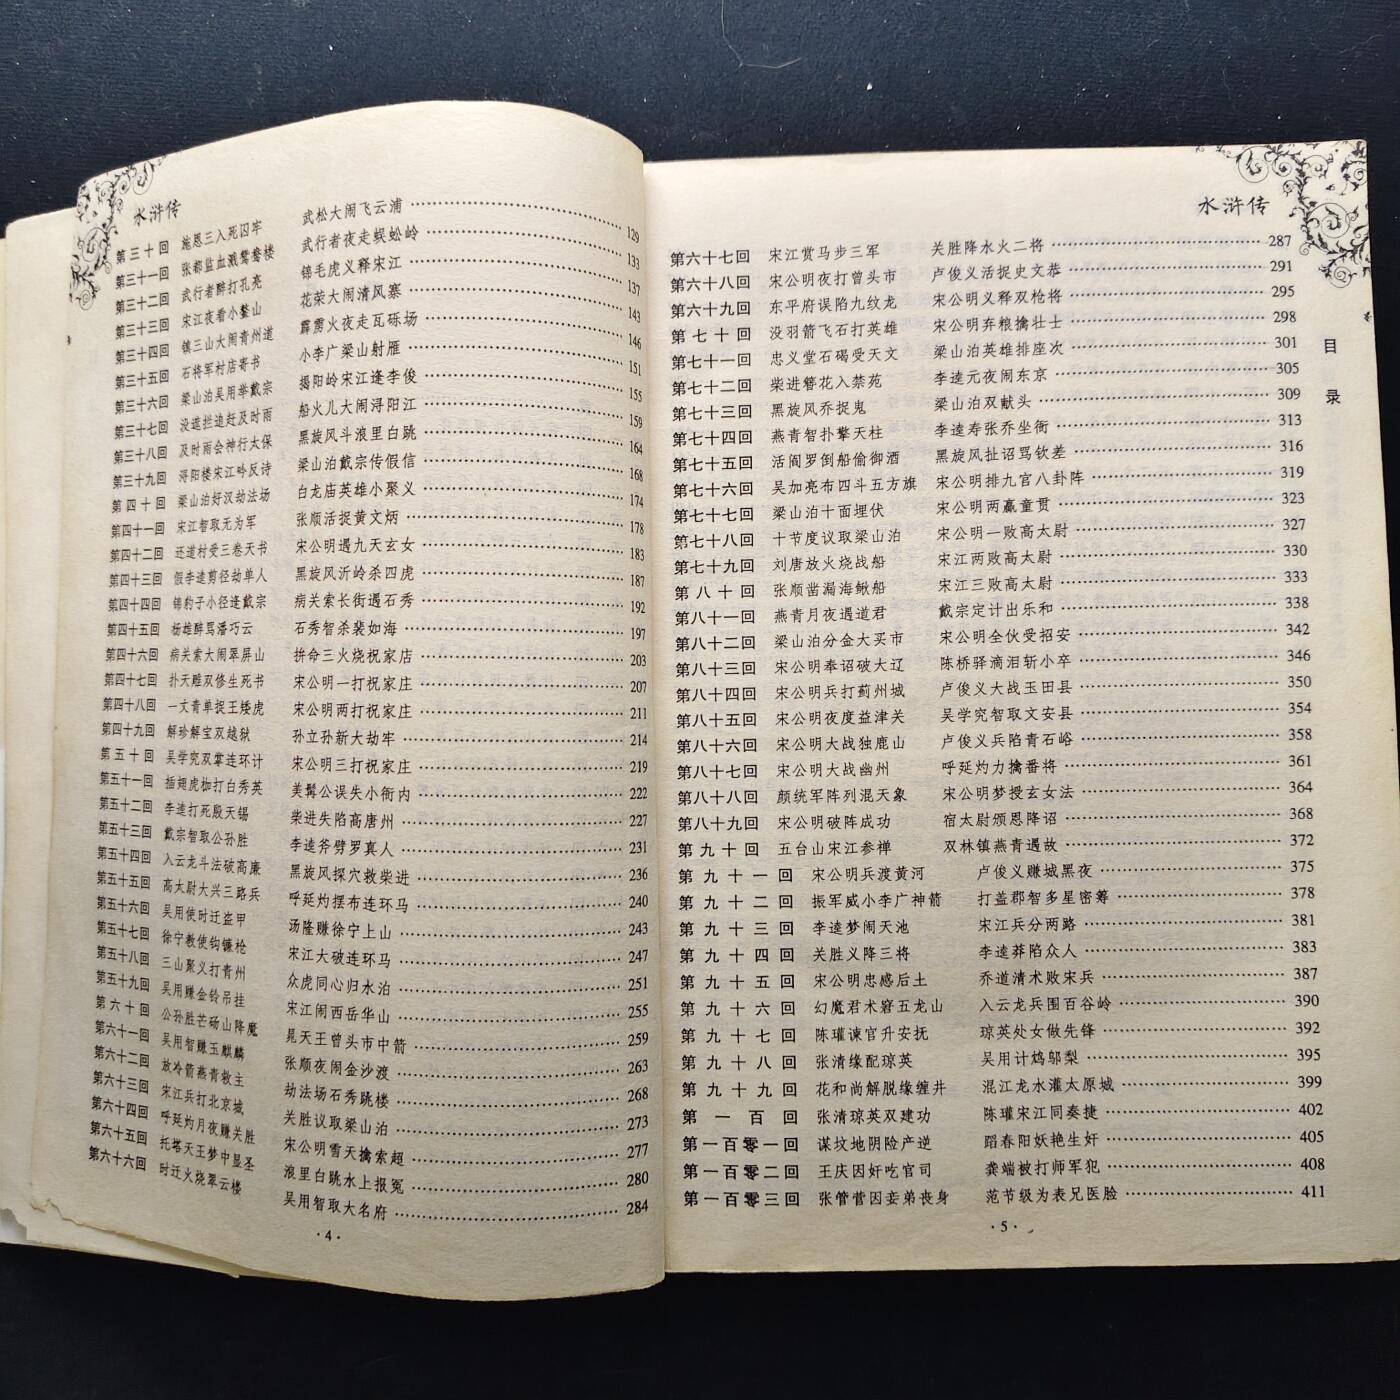 水浒传
第三十回 施恩三入死囚牢 武松大闹飞云浦 129
第三十一回 张都监血溅鸳鸯楼 武行者夜走蜈蚣岭 133
第三十二回 武行者醉打孔亮 锦毛虎义释宋江 137
第三十三回 宋江夜看小鳌山 花荣大闹清风寨 143
第三十四回 镇三山大闹青州道 霹雳火夜走瓦砾场 146
第三十五回 石将军村店寄书 小李广梁山射雁 151
第三十六回 梁山泊吴用举戴宗 揭阳岭宋江逢李俊 155
第三十七回 没遮拦追赶及时雨 船火儿大闹浔阳江 159
第三十八回 及时雨会神行太保 黑旋风斗浪里白跳 164
第三十九回 浔阳楼宋江吟反诗 梁山泊戴宗传假信 168
第四十回 梁山泊好汉劫法场 白龙庙英雄小聚义 174
第四十一回 宋江智取无为军 张顺活捉黄文炳 178
第四十二回 还道村受三卷天书 宋公明遇九天玄女 183
第四十三回 假李逵剪径劫单人 黑旋风沂岭杀四虎 187
第四十四回 锦豹子小径逢戴宗 病关索长街遇石秀 192
第四十五回 杨雄醉骂潘巧云 石秀智杀裴如海 197
第四十六回 病关索大闹翠屏山 拚命三火烧祝家店 203
第四十七回 扑天雕双修生死书 宋公明一打祝家庄 207
第四十八回 一丈青单捉王矮虎 宋公明两打祝家庄 211
第四十九回 解珍解宝双越狱 孙立孙新大劫牢 214
第五十回 吴学究双掌连环计 宋公明三打祝家庄 219
第五十一回 插翅虎枷打白秀英 美髯公误失小衙内 222
第五十二回 李逵打死殷天锡 柴进失陷高唐州 227
第五十三回 戴宗智取公孙胜 李逵斧劈罗真人 231
第五十四回 入云龙斗法破高廉 黑旋风探穴救柴进 236
第五十五回 高太尉大兴三路兵 呼延灼摆布连环马 240
第五十六回 吴用使时迁盗甲 汤隆赚徐宁上山 243
第五十七回 徐宁教使钩镰枪 宋江大破连环马 247
第五十八回 三山聚义打青州 众虎同心归水泊 251
第五十九回 吴用赚金铃吊挂 宋江闹西岳华山 255
第六十回 公孙胜芒砀山降魔 晁天王曾头市中箭 259
第六十一回 吴用智赚玉麒麟 张顺夜闹金沙渡 263
第六十二回 放冷箭燕青救主 劫法场石秀跳楼 268
第六十三回 宋江兵打北京城 关胜议取梁山泊 273
第六十四回 呼延灼月夜赚关胜 宋公明雪天擒索超 277
第六十五回 托塔天王梦中显圣 浪里白跳水上报冤 280
第六十六回 时迁火烧翠云楼 吴用智取大名府 284
·4·
水浒传
目录
第六十七回 宋江赏马步三军 关胜降水火二将 287
第六十八回 宋公明夜打曾头市 卢俊义活捉史文恭 291
第六十九回 东平府误陷九纹龙 宋公明义释双枪将 295
第七十回 没羽箭飞石打英雄 宋公明弃粮擒壮士 298
第七十一回 忠义堂石碣受天文 梁山泊英雄排座次 301
第七十二回 柴进簪花入禁苑 李逵元夜闹东京 305
第七十三回 黑旋风乔捉鬼 梁山泊双献头 309
第七十四回 燕青智扑擎天柱 李逵寿张乔坐衙 313
第七十五回 活阎罗倒船偷御酒 黑旋风扯诏骂钦差 316
第七十六回 吴加亮布四斗五方旗 宋公明排九宫八卦阵 319
第七十七回 梁山泊十面埋伏 宋公明两赢童贯 323
第七十八回 十节度议取梁山泊 宋公明一败高太尉 327
第七十九回 刘唐放火烧战船 宋江两败高太尉 330
第八十回 张顺凿漏海鳅船 宋江三败高太尉 333
第八十一回 燕青月夜遇道君 戴宗定计出乐和 338
第八十二回 梁山泊分金大买市 宋公明全伙受招安 342
第八十三回 宋公明奉诏破大辽 陈桥驿滴泪斩小卒 346
第八十四回 宋公明兵打蓟州城 卢俊义大战玉田县 350
第八十五回 宋公明夜度益津关 吴学究智取文安县 354
第八十六回 宋公明大战独鹿山 卢俊义兵陷青石峪 358
第八十七回 宋公明大战幽州 呼延灼力擒番将 361
第八十八回 颜统军阵列混天象 宋公明梦授玄女法 364
第八十九回 宋公明破阵成功 宿太尉颁恩降诏 368
第九十回 五台山宋江参禅 双林镇燕青遇故 372
第九十一回 宋公明兵渡黄河 卢俊义赚城黑夜 375
第九十二回 振军威小李广神箭 打盖郡智多星密筹 378
第九十三回 李逵梦闹天池 宋江兵分两路 381
第九十四回 关胜义降三将 李逵莽陷众人 383
第九十五回 宋公明忠感后土 乔道清术败宋兵 387
第九十六回 幻魔君术窘五龙山 入云龙兵围百谷岭 390
第九十七回 陈瓘谏官升安抚 琼英处女做先锋 392
第九十八回 张清缘配琼英 吴用计鸩邬梨 395
第九十九回 花和尚解脱缘缠井 混江龙水灌太原城 399
第一百回 张清琼英双建功 陈瓘宋江同奏捷 402
第一百零一回 谋坟地阴险产逆 蹈春阳妖艳生奸 405
第一百零二回 王庆因奸吃官司 龚端被打师军犯 408
第一百零三回 张管营因妾弟丧身 范节级为表兄医脸 411
·5·